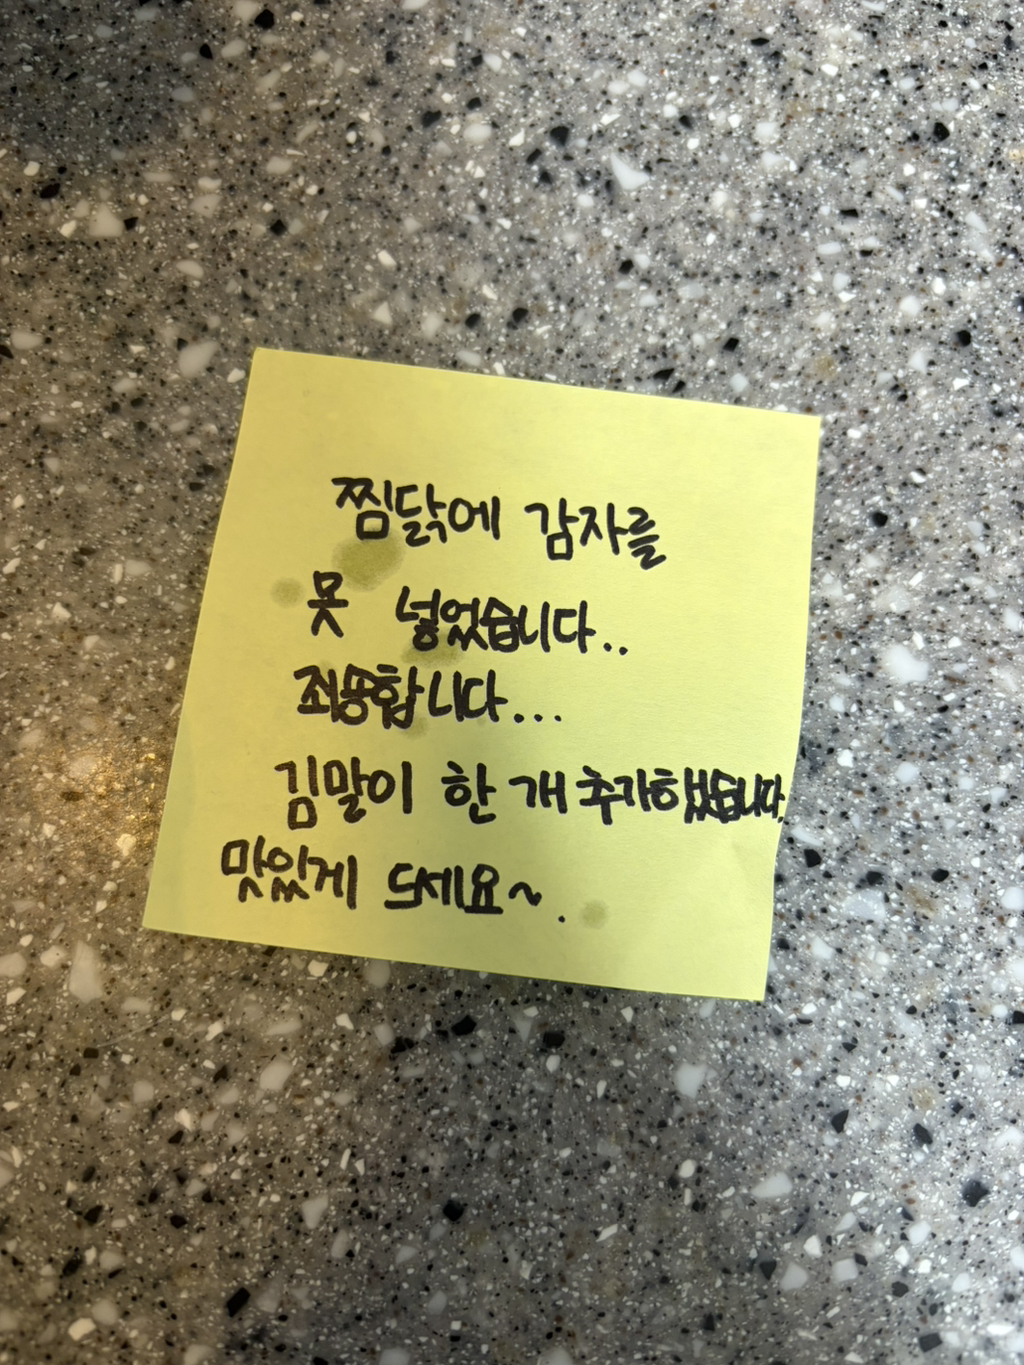 찜닭에 감자를
못 넣었습니다..
죄송합니다...
김말이 한 개 추가했습니다.
맛있게 드세요~.